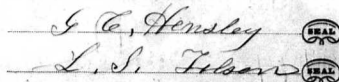 G. C. Hensley SEAL
L. S. Tilson SEAL